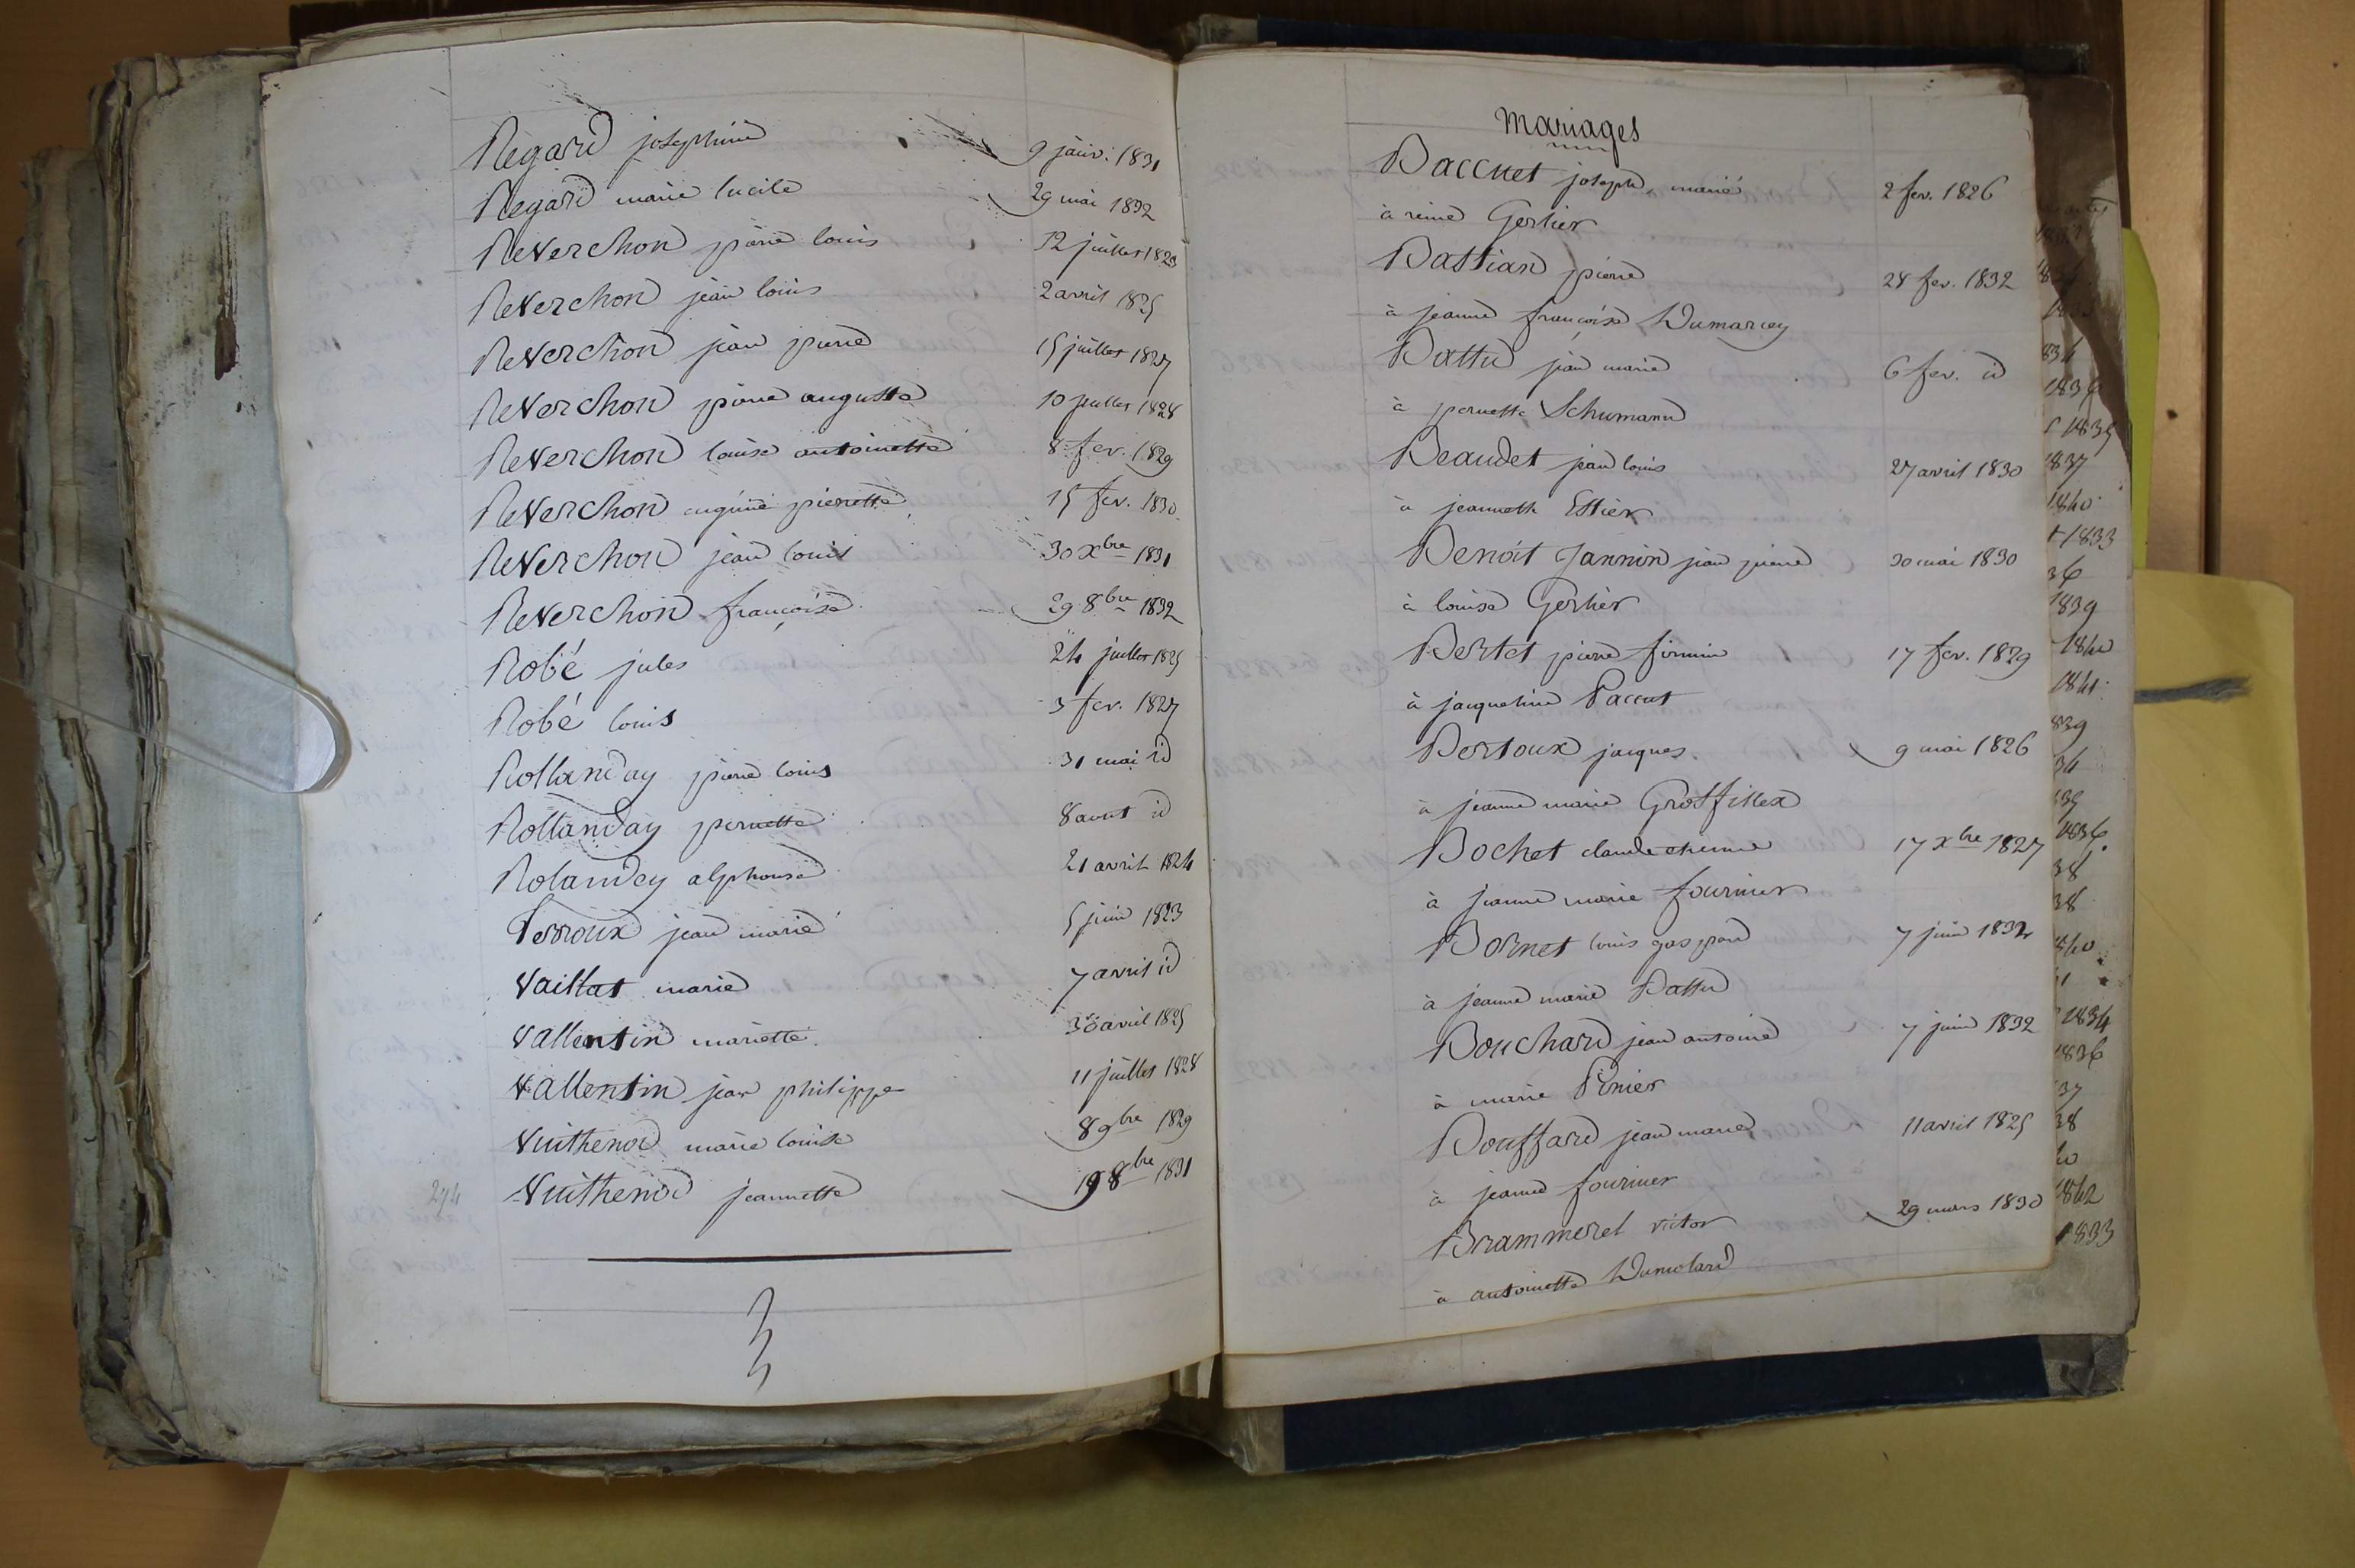 Regard josephine 9 janv. 1831
Regard marie lucile 29 mai 1832
Reverchon pierre louis 12 juillet 1823
Reverchon jean louis 2 avril 1825
Reverchon jean pierre 15 juillet 1827
Reverchon pierre auguste 10 juillet 1828
Reverchon louise antoinette 8 fev. 1829
Reverchon eugénie pierrette 15 fev. 1830
Reverchon jean louis 30 Xbre 1831
Reverchon françoise 29 8bre 1832
Robé jules 24 juillet 1825
Robé louis 3 fev. 1827
Rollanday pierre louis 31 mai id
Rollanday pernette 8 aout id
Rolandey alphonse 21 avril 1824
Terroux jean marie 5 juin 1823
Vaillat marie 7 avril id
Vallentin mariette 30 avril 1825
Vallentin jean philippe 11 juillet 1828
Vuithenod marie louise 8 9bre 1829
274 Vuithenod jeannette 19 8bre 1831
mariages
Baccuet joseph marie 2 fev. 1826
à reine Gerlier
Bastian pierre 28 fev. 1832
à jeanne françoise Dumarcey
Battu jean marie 6 fev. id
à pernette Schumann
Beaudet jean louis 27 avril 1830
à jeannette Estier
Benoit Jannin jean pierre 30 mai 1830
à louise Gerlier
Bertet pierre firmin 17 fev. 1829
à jacqueline Paccut
Bertoux jacques 9 mai 1826
à jeanne marie Grosfillex
Bochet claude etienne 17 Xbre 1827
à jeanne marie fournier
Bornet louis gaspard 7 juin 1832
à jeanne marie Battu
Bouchard jean antoine 7 juin 1832
à marie Pinier
Bouffard jean marie 11 avril 1825
à jeanne fournier
Brammerel victor 29 mars 1830
à antoinette Dumolard